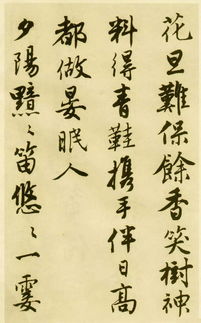 花旦難保餘香笑樹神
料得青鞋携手伴日高
都做晏眠人
夕陽黯黯笛悠悠一霎